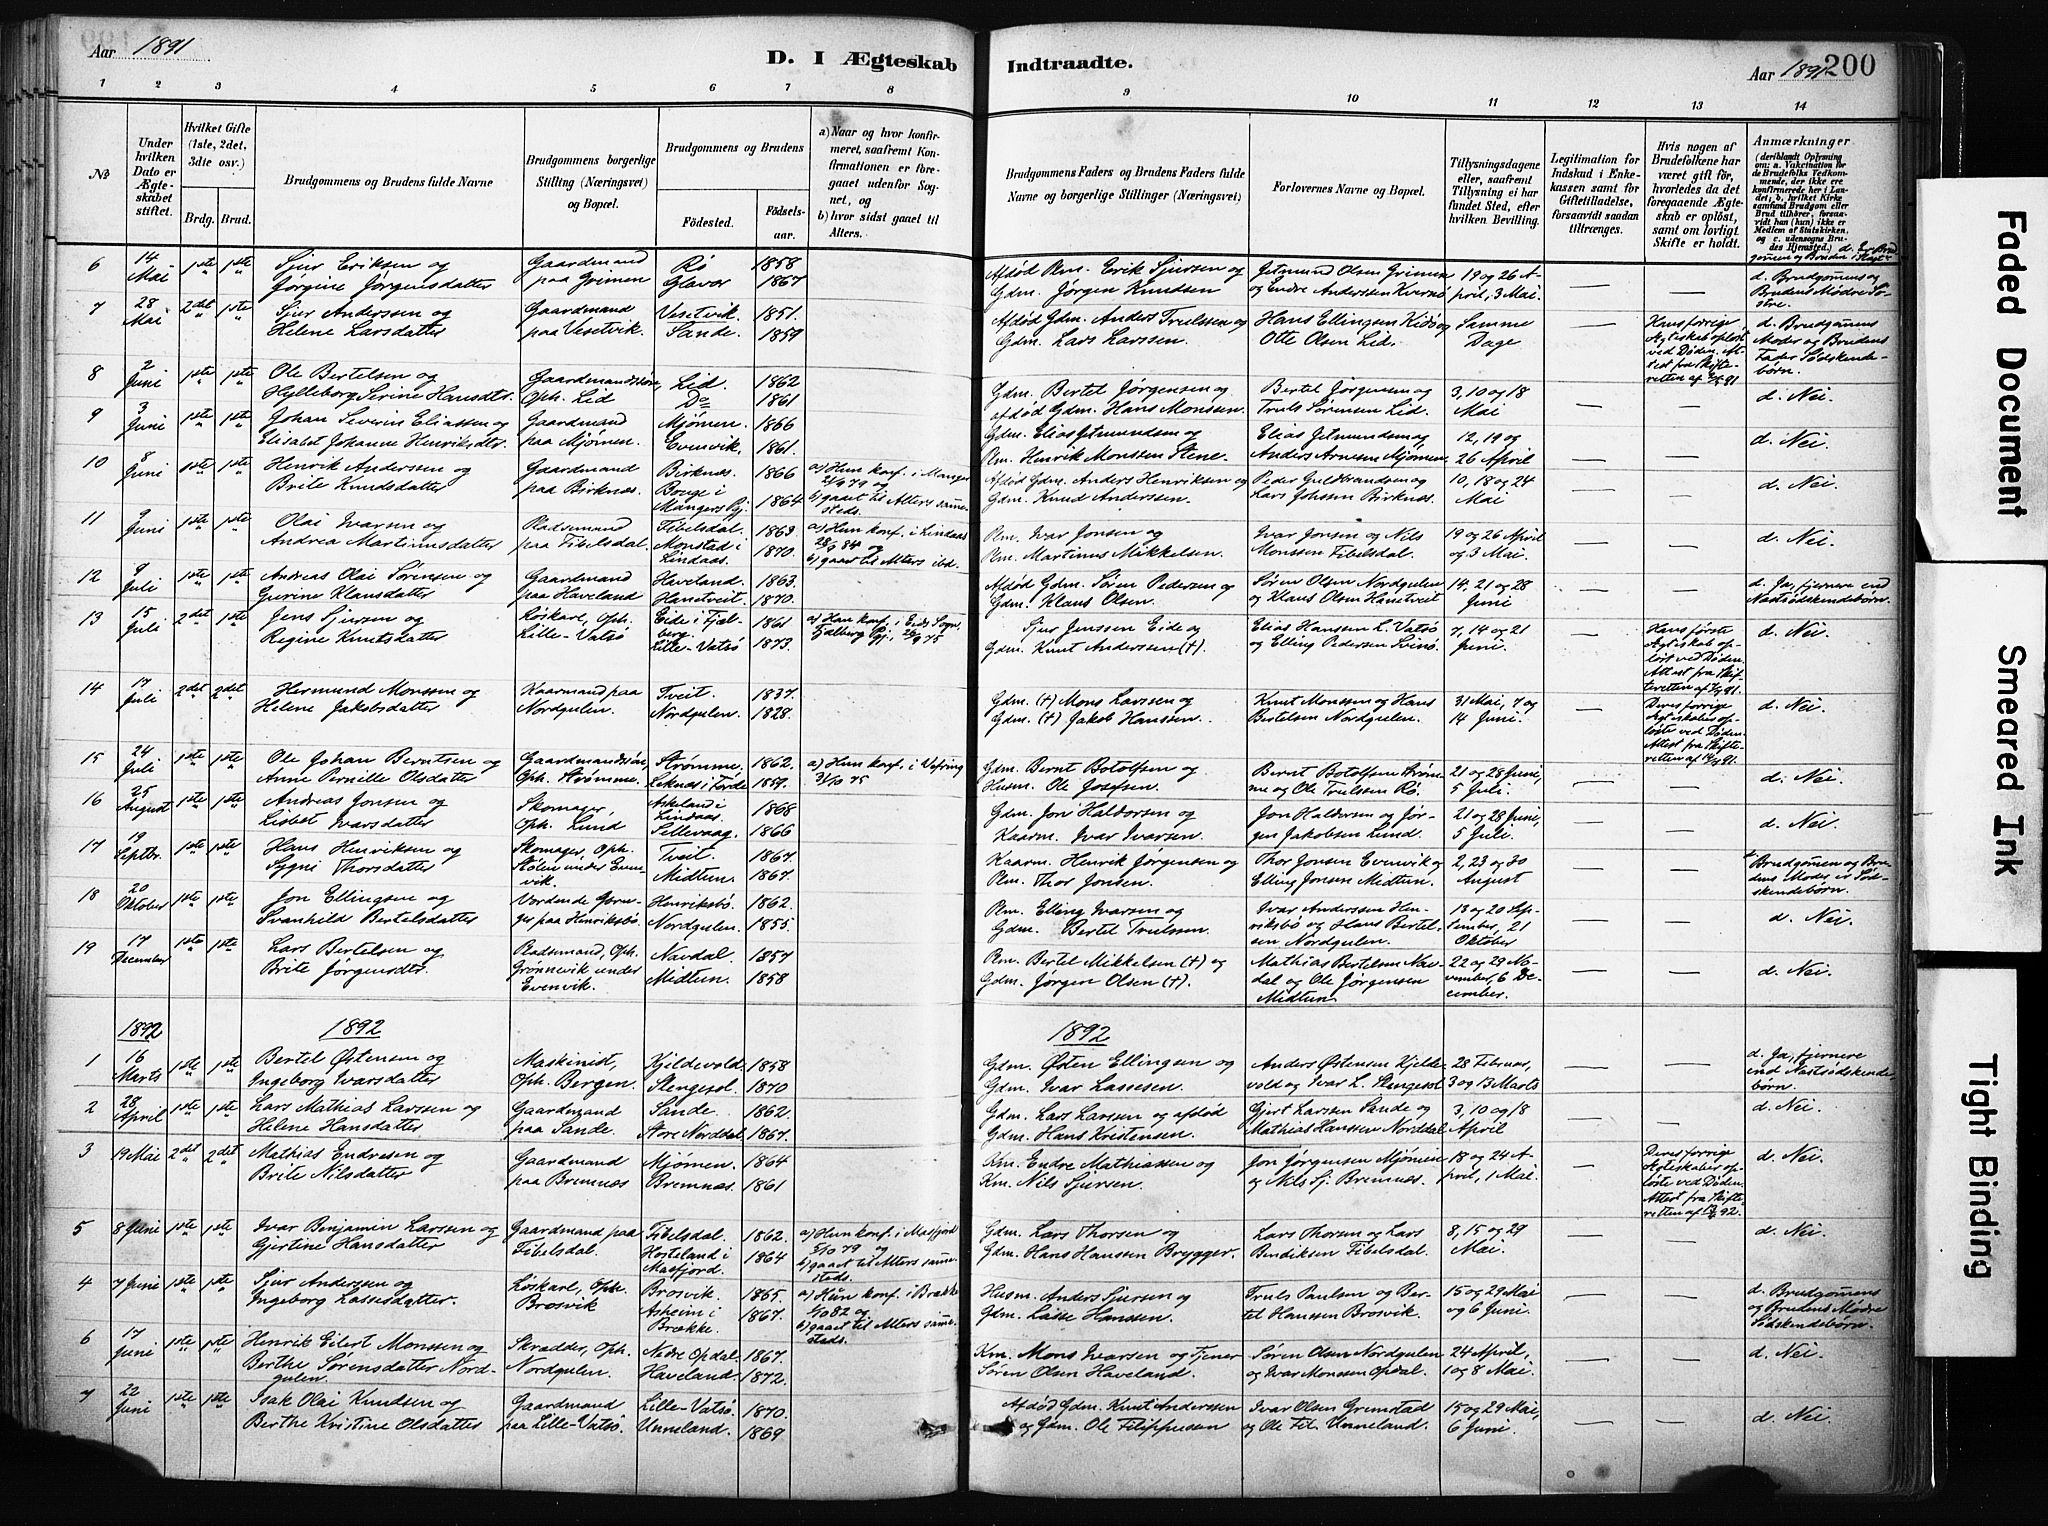 Aar 1891
D. I Ægteskab Indtraadte.
Aar 1891-2 200
1 2 3 4 5 6 7 8 9 10 11 12 13 14
No
Under hvilken Dato er Ægteskabet stiftet.
Hvilket Gifte (1ste, 2det, 3die osv.)
Brdg. Brud.
Brudgommens og Brudens fulde Navne
Brudgommens borgerlige Stilling (Næringsvei) og Bopæl.
Brudgommens og Brudens
Fødested. Fødselsaar.
a) Naar og hvor konfirmeret, saafremt Konfirmationen er foregaaet udenfor Sognet, og
b) hvor sidst gaaet til Alters.
Brudgommens Faders og Brudens Faders fulde Navne og borgerlige Stillinger (Næringsvei)
Forlovernes Navne og Bopæl.
Tillysningsdagene eller, saafremt Tillysning ei har fundet Sted, efter hvilken Bevilling.
Legitimation for Indskud i Enkekassen samt for Giftetilladelse, forsaavidt saadan tiltrænges.
Hvis nogen af Brudefolkene har været gift før, hvorledes da det foregaaende Ægteskab er opløst, samt om lovligt Skifte er holdt.
Anmærkninger
(deriblandt Oplysning om: a. Vakcination for de Brudefolks Vedkommende, der ikke ere konfirmerede her i Landet; b. hvilket Kirkesamfund Brudgom eller Brud tilhører, forsaavidt han (hun) ikke er Medlem af Statskirken, og c. udensogns Brudes Hjemsted.)
6 14 Mai 1ste 1ste Sjur Eriksen og Jørgine Jørgensdatter Gaardmand paa Grimen Rø Glavor 1858 1867 Afdød Plm. Erik Sjursen og Gdm. Jørgen Knudsen Jetmund Olsen Grimen og Endre Anderssen Kversø 19 og 26 April, 3 Mai. — — d. Brudgommens og Brudens Mødre Søstre.
7 28 Mai 2det 1ste Sjur Anderssen og Helene Larsdatter Gaardmand paa Vesetvik. Vesetvik. Sande. 1851. 1859 Afdød Gdm. Anders Trulssen og Gdm. Lars Larssen. Hans Ellingsen Kidø og Otte Olsen Lid. Samme Dage — Hans forrige Ægteskab opløst ved Døden. Attest fra Skifteretten af 91 d. Brudgommens Moder og Brudens Fader Sødskendebørn.
8 2 Juni 1ste 1ste Ole Bertelsen og Hylleborg Serine Hansdtr. Gaardmandssøn, Oph. Lid Lid. Do 1862 1861 Gdm. Bertel Jørgensen og afdød Gdm. Hans Monssen. Bertel Jørgensen og Truls Sørensen Lid. 3, 10 og 18 Mai — — d. Nei.
9 3 Juni 1ste 1ste Johan Severin Eliassen og Elisabet Johanne Henriksdtr. Gaardmand paa Mjømen. Mjømen. Evenvik. 1866 1861. Gdm. Elias Jetmundsen og Plm. Henrik Monssen Stene Elias Jetmundsen og Anders Arnesen Mjømen. 12, 19 og 26 April — — d. Nei.
10 8 Juni 1ste 1ste Henrik Anderssen og Brite Knudsdatter Gaardmand paa Birknæs. Birknæs. Bouge i Mangers Pgj. 1866 1864 a) Hun konf. i Manger 21/9 79 og b) gaaet til Alters sammesteds. Afdød Gdm. Anders Henriksen og Gdm. Knud Anderssen. Peder Gulbrandsen og Lars Johssen Birknæs. 10, 18 og 24 Mai — — d. Nei.
11 9 Juni 1ste 1ste Olai Ivarsen og Andrea Martinusdatter Pladsemand paa Fibelsdal. Fibelsdal. Monstad i Lindaas. 1863. 1870. a) Hun konf. i Lindaas 28/9 84 og b) gaaet til Alters ibd. Plm. Ivar Jonsen og Plm. Martinus Mikkelsen. Ivar Jonsen og Nils Monssen Fibelsdal. 19 og 26 April og 3 Mai. — — d. Nei.
12 9 Juli 1ste 1ste Andreas Olai Sørensen og Gurine Klausdatter Gaardmand paa Haveland Haveland. Hanetveit. 1863. 1870. Afdød Gdm. Søren Pedersen og Gdm. Klaus Olsen. Søren Olsen Nordgulen og Klaus Olsen Hanetveit 14, 21 og 28 Juni — — d. Ja, fjernere end Næstsødskendebørn.
13 15 Juli 2det 1ste Jens Sjursen og Regine Knutsdatter Løskarl, Oph. Lille-Vatsø Eide i Fjælberg. Lille-Vatsø 1861 1873. a) Han konf. i Eids Sogn, Fjælberg Pgj. 26/9 75 Sjur Jenssen Eide og Gdm. Knut Anderssen (†). Elias Hanssen L. Vatsø og Elling Pedersen Svinø. 7, 14 og 21 Juni. — Hans første Ægteskab opløst ved Døden. Attest fra Skifteretten af 91. d. Nei.
14 17 Juli 2det 2det Hermund Monssen og Helene Jakobsdatter Kaarmand paa Nordgulen. Tveit. Nordgulen. 1837. 1828. Gdm. (†) Mons Larssen og Gdm. (†) Jakob Hanssen. Knut Monssen og Hans Bertelsen Nordgulen. 31 Mai, 7 og 14 Juni. — Deres forrige Ægteskaber opløste ved Døden. Attest fra Skifteretten af 91. d. Nei.
15 24 Juli 1ste 1ste Ole Johan Berntsen og Anne Pernille Olsdatter Gaardmandssøn, Oph. Strømme. Strømme. Leknes i Førde 1862. 1859. a) Hun konf. i Vefring 31/10 75 Gdm. Bernt Botolfsen og Husm. Ole Josefsen. Bernt Botolfsen Strømme og Ole Trulssen Rø. 21 og 28 Juni, 5 Juli. — — d. Nei.
16 25 August 1ste 1ste Andreas Jonsen og Lisbet Ivarsdatter Skomager, Oph. Lund Askeland i Lindaas. Sellevaag. 1868 1866 Gdm. Jon Haldorsen og Kaarm. Ivar Ivarsen. Jon Haldorsen og Jørgen Jakobsen Lund. 21 og 28 Juni, 5 Juli. — — d. Nei.
17 19 Septbr. 1ste 1ste Hans Henriksen og Sygni Thorsdatter Skomager, Oph. Stølen under Evenvik. Tveit. Midtun. 1867. 1867. Kaarm. Henrik Jørgensen og Plm. Thor Jonsen. Thor Jonsen Evenvik og Elling Jonsen Midtun. 2, 23 og 30 August — — Brudgommen og Brudens Moder er Sødskendebørn.
18 20 Oktober 1ste 1ste Jon Ellingsen og Svanhild Bertelsdatter Vordende Gaardmand paa Henriksbø. Henriksbø. Nordgulen. 1862. 1855. Plm. Elling Ivarsen og Gdm. Bertel Trulssen. Ivar Anderssen Henriksbø og Hans Bertelsen Nordgulen. 13 og 20 September, 21 Oktober — — d. Nei.
19 17 December 1ste 1ste Lars Bertelsen og Brite Jørgensdtr. Pladsemand, Oph. Grønnevik under Evenvik. Navdal. Midtun. 1857 1858 Plm. Bertel Mikkelsen (†) og Gdm. Jørgen Olsen (†). Mathias Bertelsen Navdal og Ole Jørgensen Midtun. 22 og 29 November, 6 December. — — d. Nei.
1892 1892 1892
1 16 Marts 1ste 1ste Bertel Østensen og Ingeborg Ivarsdatter Maskinist, Oph. Bergen. Kjeldevold. Stengesol. 1858 1870 Gdm. Østen Ellingsen og Gdm. Ivar Lassesen. Anders Østensen Kjeldevold og Ivar L. Stengesol 28 Februar, 3 og 13 Marts — — d. Ja, fjernere end Næstsødskendebørn.
2 28 April 1ste 1ste Lars Mathias Larssen og Helene Hansdatter Gaardmand paa Sande. Sande. Store Norddal 1862. 1867. Gdm. Lars Larsen og afdød Gdm. Hans Kristensen. Gjert Larssen Sande og Mathias Hanssen Norddal 3, 10 og 18 April — — d. Nei.
3 19 Mai 2det 2det Mathias Endresen og Brite Nilsdatter Gaardmand paa Bremnæs Mjømen. Bremnæs. 1864 1861 Km. Endre Mathiassen og Km. Nils Sjursen. Jon Jørgensen Mjømen og Nils Sj. Bremnæs. 18 og 24 April, 1 Mai. — Deres forrige Ægteskaber opløste ved Døden. Attest fra Skifteretten af 92. d. Nei.
5 8 Juni 1ste 1ste Ivar Benjamin Larssen og Gjertine Hansdatter Gaardmand paa Fibelsdal. Fibelsdal. Hosteland i Masfjord. 1862. 1864 a) Hun konf. i Masfjord 5/10 79 og b) gaaet til Alters sammesteds. Gdm. Lars Thorsen og Gdm. Hans Hanssen Brygger. Lars Thorsen og Lars Bendiksen Fibelsdal. 8, 15 og 29 Mai. — — d. Nei.
4 7 Juni 1ste 1ste Sjur Anderssen og Ingeborg Lassesdatter. Løskarl, Oph. Brosvik Brosvik. Asheim i Brække. 1865. 1867. a) Hun konf. i Brække 1/10 82 og b) gaaet til Alters sammesteds. Husm. Anders Sjursen og Gdm. Lasse Hanssen. Truls Paulsen og Bertel Hanssen Brosvik. 15 og 29 Mai og 6 Juni. — — d. Brudgommens og Brudens Mødre Sødskendebørn.
6 17 Juni 1ste 1ste Henrik Eilert Monssen og Berthe Sørensdatter Nordgulen Skrædder, Oph. Nordgulen. Nedre Opdal. Haveland. 1867. 1872. Km. Mons Ivarsen og Tjener Søren Olsen Haveland. Søren Olsen Nordgulen og Ivar Monssen Opdal. 24 April, 1 og 8 Mai. — — d. Nei.
7 22 Juni 1ste 1ste Isak Olai Knudsen og Berthe Kristine Olsdatter Gaardmand paa Lille-Vatsø. Lille-Vatsø. Unneland. 1870. 1869 Afdød Gdm. Knut Anderssen og Gdm. Ole Filippusen Ivar Olsen Grimstad og Ole Fil. Unneland. 15 og 29 Mai, 6 Juni. — — d. Nei.
Faded Document
Smeared Ink
Tight Binding